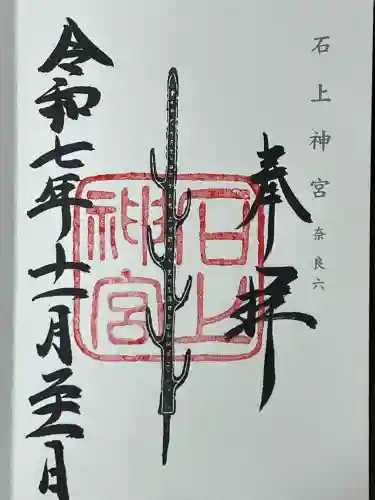 石上神宮 奈良六
奉拝
石上神宮
令和七年十一月二十一日